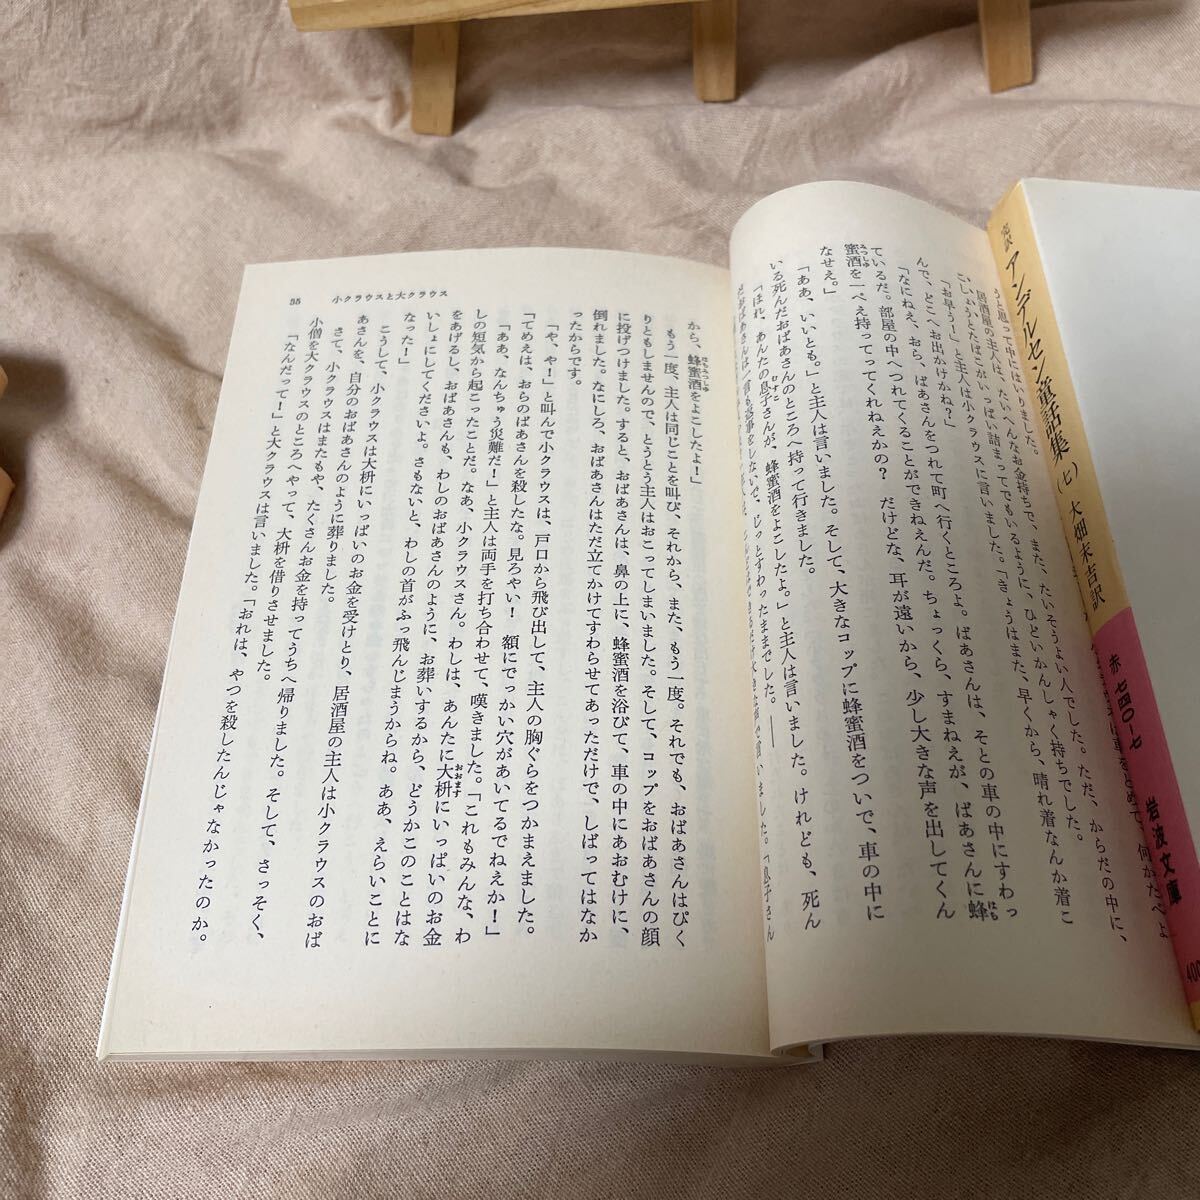 完訳 アンデルセン童話集(七) 大畑末吉訳
赤 七四〇-七
岩波文庫
400
うと思って中にはいりました。
居酒屋の主人は、たいへんなお金持ちで、また、たいそうよい人でした。ただ、からだの中に、
こしょうとたばこがいっぱい詰まってでもいるように、ひどいかんしゃく持ちでした。
「お早う!」と主人は小クラウスに言いました。「きょうはまた、早くから、晴れ着なんか着こ
んで、どこへお出かけかね?」
「なにねえ、おら、ばあさんをつれて町へ行くところよ。ばあさんは、そとの車の中にすわっ
ているだ。部屋の中へつれてくることができねえんだ。ちょっくら、すまねえが、ばあさんに蜂
蜜酒を一ぺえ持ってってくれねえかの? だけどな、耳が遠いから、少し大きな声を出してくん
なせえ。」
「ああ、いいとも。」と主人は言いました。そして、大きなコップに蜂蜜酒をついで、車の中に
いる死んだおばあさんのところへ持って行きました。
「ほれ、あんたの息子さんが、蜂蜜酒をよこしたよ。」と主人は言いました。けれども、死ん
だおばあさんは一言も返事をしないで、じっとすわったままでした。――
から、蜂蜜酒をよこしたよ!」
もう一度、主人は同じことを叫び、それから、また、もう一度。それでも、おばあさんはぴく
りともしませんので、とうとう主人はおこってしまいました。そして、コップをおばあさんの顔
に投げつけました。すると、おばあさんは、鼻の上に、蜂蜜酒を浴びて、車の中にあおむけに、
倒れました。なにしろ、おばあさんはただ立てかけてすわらせてあっただけで、しばってはなか
ったからです。
「や、や!」と叫んで小クラウスは、戸口から飛び出して、主人の胸ぐらをつかまえました。
「てめえは、おらのばあさんを殺したな。見ろやい! 額にでっかい穴があいてるでねえか!」
「ああ、なんちゅう災難だ!」と主人は両手を打ち合わせて、嘆きました。「これもみんな、わ
しの短気から起こったことだ。なあ、小クラウスさん。わしは、あんたに大枡にいっぱいのお金
をあげるし、おばあさんも、わしのおばあさんのように、お葬いするから、どうかこのことはな
いしょにしてくださいよ。さもないと、わしの首がふっ飛んじまうからね。ああ、えらいことに
なった!」
こうして、小クラウスは大枡にいっぱいのお金を受けとり、居酒屋の主人は小クラウスのおば
あさんを、自分のおばあさんのように葬りました。
さて、小クラウスはまたもや、たくさんお金を持ってうちへ帰りました。そして、さっそく、
小僧を大クラウスのところへやって、大枡を借りさせました。
「なんだって!」と大クラウスは言いました。「おれは、やつを殺したんじゃなかったのか。
小クラウスと大クラウス
55